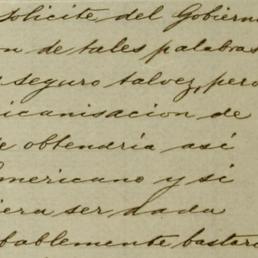 solicite del Gobiern
on de tales palabras
seguro talvez, pero
icanisacion de
e obtendría así
mericano y si
iera ser dada
obablemente bastar